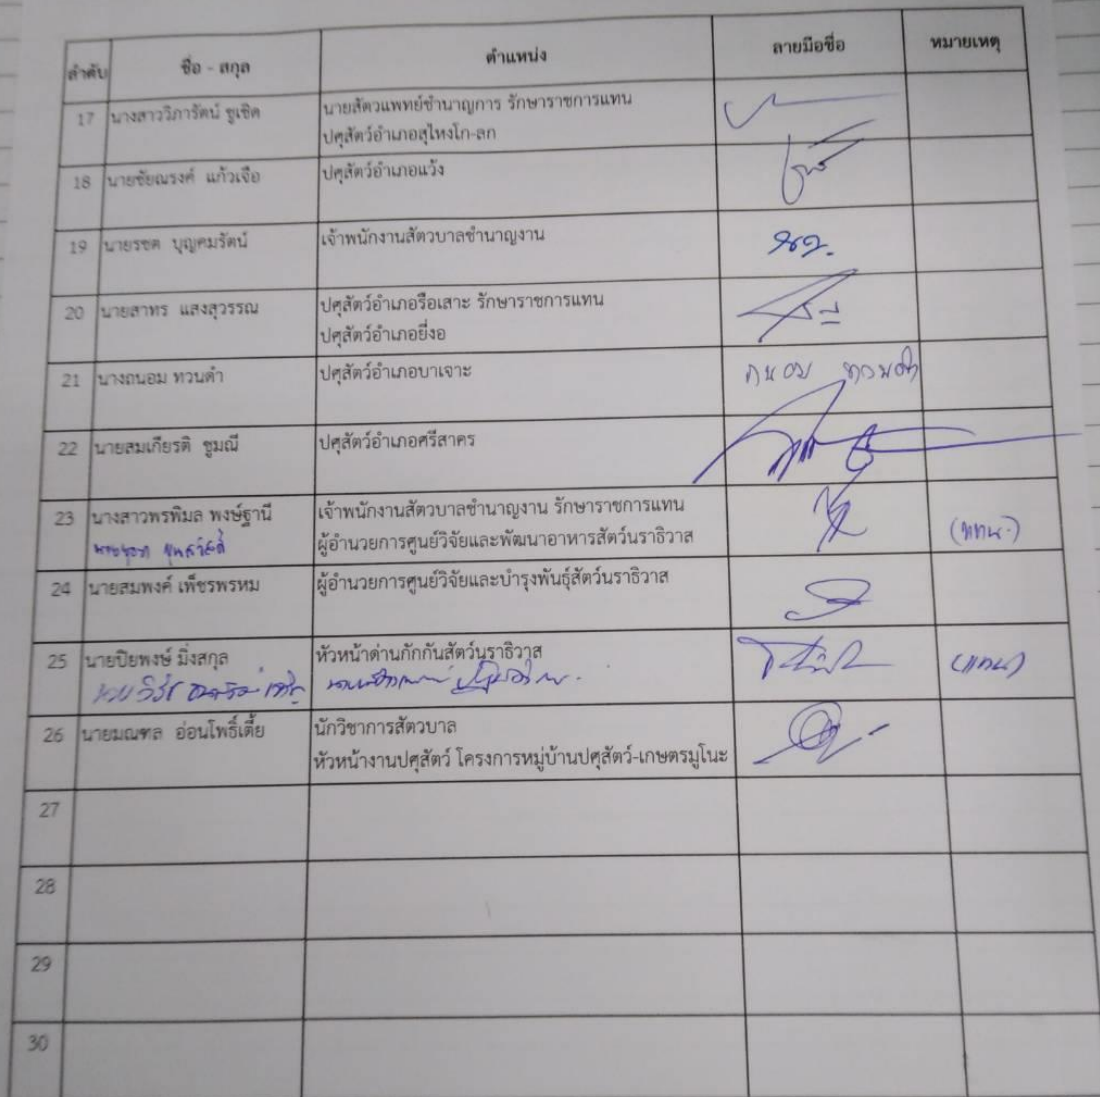 ลำดับ ชื่อ - สกุล ตำแหน่ง ลายมือชื่อ หมายเหตุ
17 นางสาววิภารัตน์ ชูเชิด นายสัตวแพทย์ชำนาญการ รักษาราชการแทน
ปศุสัตว์อำเภอสุไหงโก-ลก
18 นายชัยณรงค์ แก้วเจือ ปศุสัตว์อำเภอแว้ง
19 นายรชต บุญคมรัตน์ เจ้าพนักงานสัตวบาลชำนาญงาน
20 นายสาทร แสงสุวรรณ ปศุสัตว์อำเภอรือเสาะ รักษาราชการแทน
ปศุสัตว์อำเภอยี่งอ
21 นางถนอม ทวนดำ ปศุสัตว์อำเภอบาเจาะ ถนอม ทวนดำ
22 นายสมเกียรติ ชูมณี ปศุสัตว์อำเภอศรีสาคร
23 นางสาวพรพิมล พงษ์ฐานี เจ้าพนักงานสัตวบาลชำนาญงาน รักษาราชการแทน
ผู้อำนวยการศูนย์วิจัยและพัฒนาอาหารสัตว์นราธิวาส (แทน)
24 นายสมพงค์ เพ็ชรพรหม ผู้อำนวยการศูนย์วิจัยและบำรุงพันธุ์สัตว์นราธิวาส
25 นายปิยพงษ์ มิ่งสกุล หัวหน้าด่านกักกันสัตว์นราธิวาส (แทน)
26 นายมณฑล อ่อนโพธิ์เตี้ย นักวิชาการสัตวบาล
หัวหน้างานปศุสัตว์ โครงการหมู่บ้านปศุสัตว์-เกษตรมูโนะ
27
28
29
30